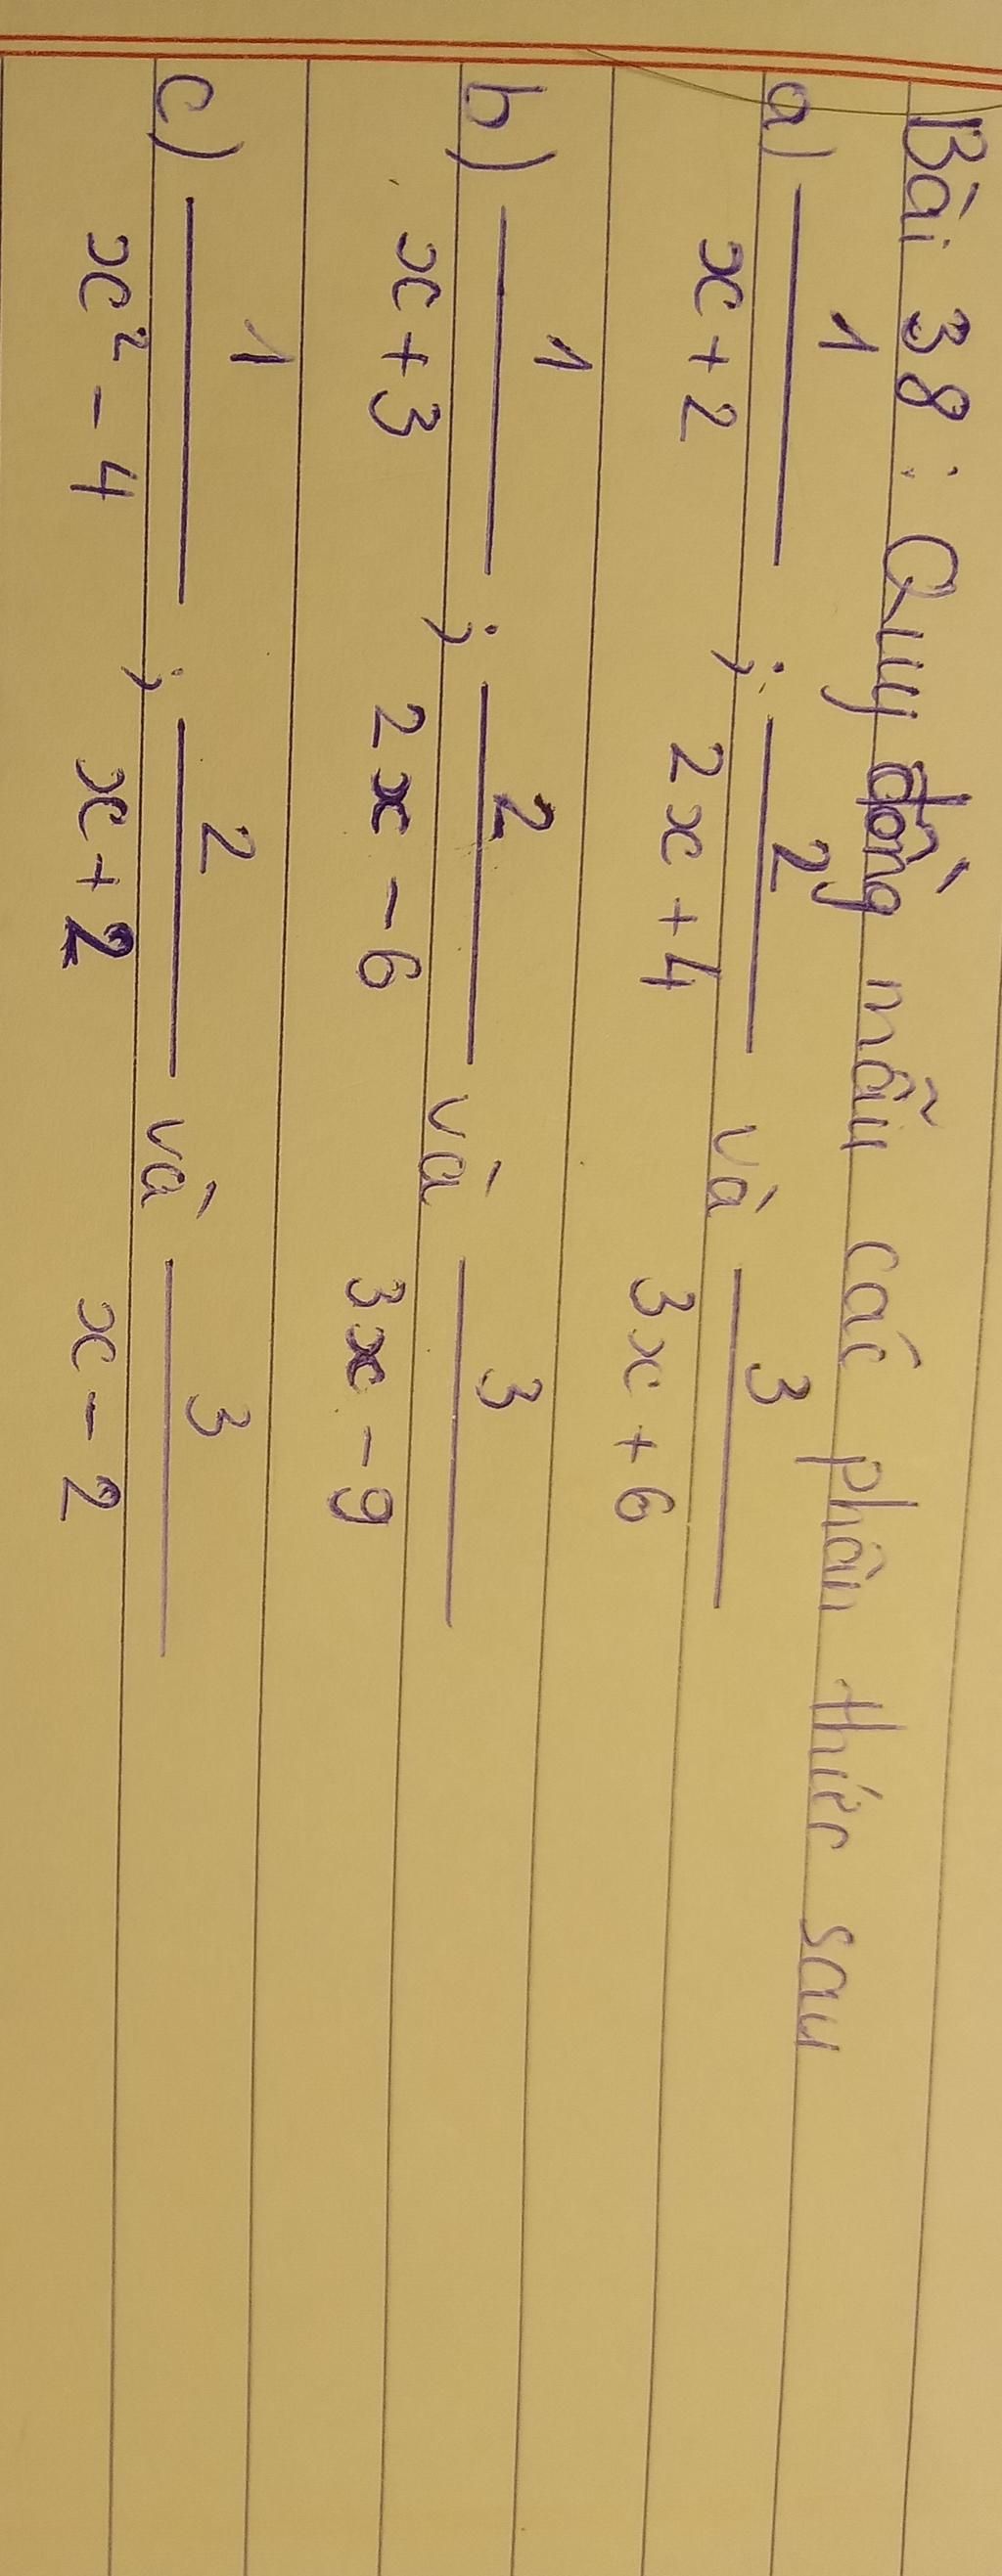 Bài 38 : Quy đồng mẫu các phân thức sau
a) 1/(x + 2) ; 2/(2x + 4) và 3/(3x + 6)
b) 1/(x + 3) ; 2/(2x - 6) và 3/(3x - 9)
c) 1/(x² - 4) ; 2/(x + 2) và 3/(x - 2)